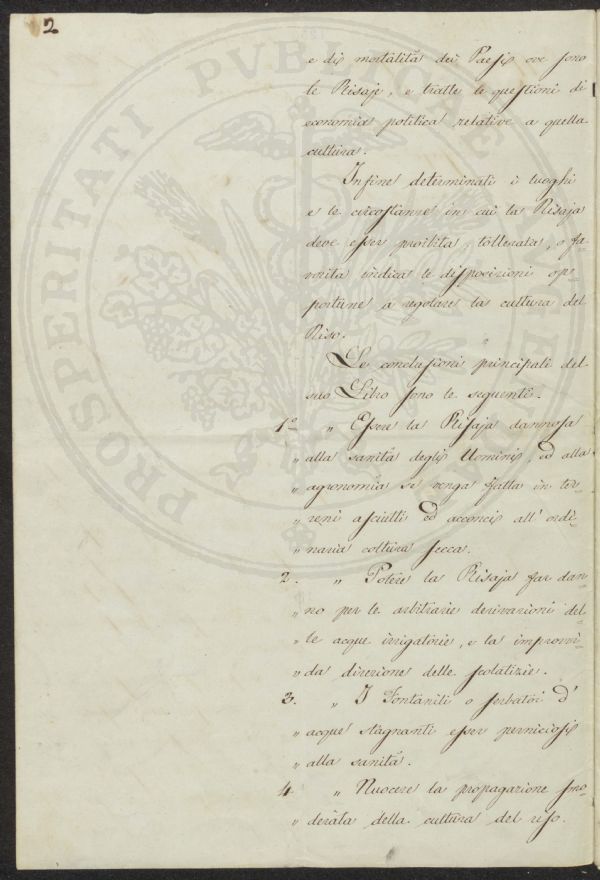 2
e di mortalità dei Paesi ove sono
le Risaje, e tratte le questioni di
economia politica relative a quella
cultura.
Infine determinati i luoghi
e le circostanze in cui la Risaja
deve esser proibita, tollerata, o fa-
vorita indica le disposizioni op-
portune a regolare la cultura del
Riso.
Le conclusioni principali del
suo Libro sono le seguenti.
1.° „ Essere la Risaja dannosa
„ alla sanità degli Uomini, ed alla
„ agronomia se venga fatta in ter-
„ reni asciutti ed acconci all' ordi-
„ naria coltura secca.
2. „ Potere la Risaja far dan-
„ no per le arbitrarie derivazioni del-
„ le acque irrigatorie, e la improvvi-
„ da direzione delle scolatizie.
3. „ I Fontanili o serbatoi d'
„ acque stagnanti esser perniciosi
„ alla sanità.
4. „ Nuocere la propagazione smo-
„ derata della cultura del riso.
PROSPERITATI PVBLICAE